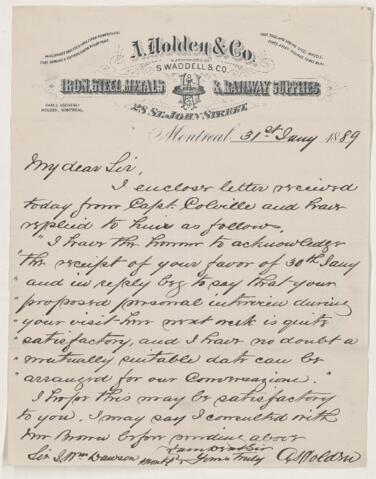 A. Holden & Co.
SUCCESSORS TO
S. WADDELL & CO.
IRON, STEEL, METALS & RAILWAY SUPPLIES
CABLE ADDRESS:
HOLDEN, MONTREAL.
28 St. John Street
Montreal 31st Jany 1889
My dear Sir,
I enclose letter received
today from Capt. Colville and have
replied to him as follows.
"I have the honour to acknowledge
"the receipt of your favor of 30th Jany
"and in reply beg to say that your
"proposed personal interview during
"your visit here next week is quite
"satisfactory, and I have no doubt a
"mutually suitable date can be
"arranged for our Conversazione."
I hope this may be satisfactory
to you. I may say I consulted with
Mr Brown before sending above
I am Dear Sir
Sir J. Wm Dawson Montl Yours truly A. Holden